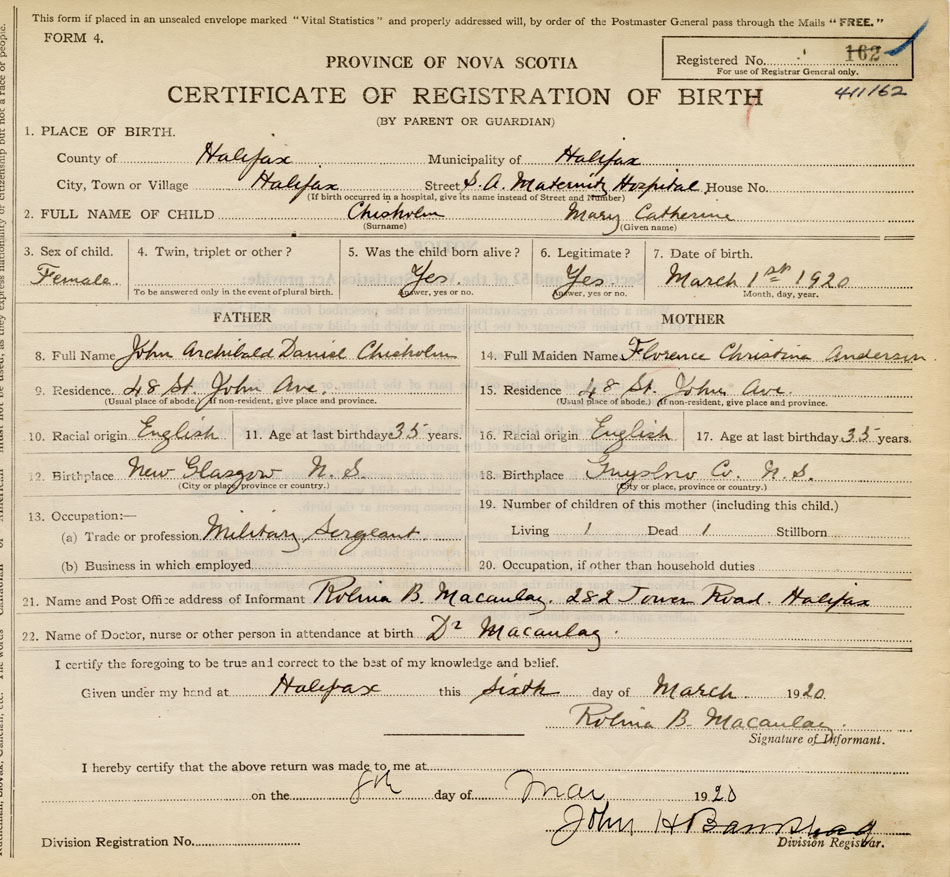 This form if placed in an unsealed envelope marked "Vital Statistics" and properly addressed will, by order of the Postmaster General pass through the Mails "FREE."
FORM 4.
Registered No. 162
For use of Registrar General only.
411162
PROVINCE OF NOVA SCOTIA
CERTIFICATE OF REGISTRATION OF BIRTH
(BY PARENT OR GUARDIAN)
1. PLACE OF BIRTH.
County of Halifax Municipality of Halifax
City, Town or Village Halifax Street S. A. Maternity Hospital House No.
(If birth occurred in a hospital, give its name instead of Street and Number)
2. FULL NAME OF CHILD Chisholm Mary Catherine
(Surname) (Given name)
3. Sex of child. 4. Twin, triplet or other? 5. Was the child born alive? 6. Legitimate? 7. Date of birth.
Female. Yes. Yes March 1st 1920
To be answered only in the event of plural birth. Answer, yes or no. Answer, yes or no. Month, day, year.
FATHER MOTHER
8. Full Name John Archibald Daniel Chisholm 14. Full Maiden Name Florence Christina Anderson.
9. Residence 48 St. John Ave. 15. Residence 48 St. John Ave.
(Usual place of abode.) (If non-resident, give place and province. (Usual place of abode.) (If non-resident, give place and province.
10. Racial origin English 11. Age at last birthday 35 years. 16. Racial origin English 17. Age at last birthday 35 years.
12. Birthplace New Glasgow N. S. 18. Birthplace Guysboro Co. N. S.
(City or place, province or country.) (City or place, province or country.)
13. Occupation:— 19. Number of children of this mother (including this child.)
(a) Trade or profession Military Sergeant Living 1 Dead 1 Stillborn
(b) Business in which employed 20. Occupation, if other than household duties
21. Name and Post Office address of Informant Rolina B. Macaulay. 282 Tower Road. Halifax
22. Name of Doctor, nurse or other person in attendance at birth Dr Macaulay.
I certify the foregoing to be true and correct to the best of my knowledge and belief.
Given under my hand at Halifax this sixth day of March. 1920.
Rolina B. Macaulay.
Signature of Informant.
I hereby certify that the above return was made to me at
on the 8th day of Mar 1920
John H
Division Registration No. Division Registrar.